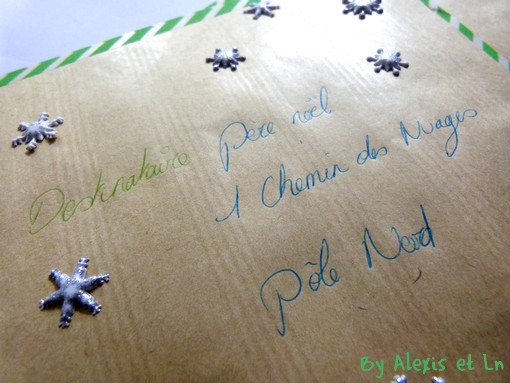 Destinataire Père noël
1 Chemin des Nuages
Pôle Nord
By Alexis et Ln